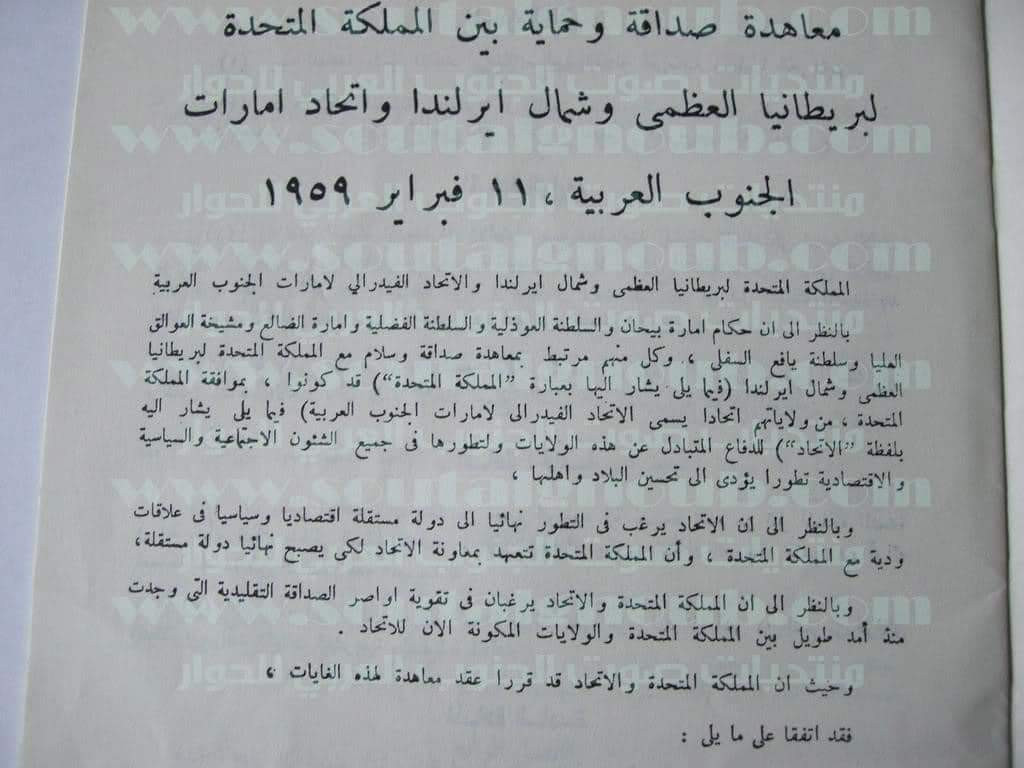 معاهدة صداقة وحماية بين المملكة المتحدة
لبريطانيا العظمى وشمال ايرلندا واتحاد امارات
الجنوب العربية ، ١١ فبراير ١٩٥٩
المملكة المتحدة لبريطانيا العظمى وشمال ايرلندا والاتحاد الفيدرالي لامارات الجنوب العربية
بالنظر الى ان حكام امارة بيحان والسلطنة العوذلية والسلطنة الفضلية وامارة الضالع ومشيخة العوالق
العليا وسلطنة يافع السفلى ، وكل منهم مرتبط بمعاهدة صداقة وسلام مع المملكة المتحدة لبريطانيا
العظمى وشمال ايرلندا (فيما يلى يشار اليها بعبارة ”المملكة المتحدة“) قد كونوا ، بموافقة المملكة
المتحدة ، من ولاياتهم اتحادا يسمى الاتحاد الفيدرالى لامارات الجنوب العربية) فيما يلى يشار اليه
بلفظة ”الاتحاد“) للدفاع المتبادل عن هذه الولايات ولتطورها فى جميع الشئون الاجتماعية والسياسية
والاقتصادية تطورا يؤدى الى تحسين البلاد واهلها ،
وبالنظر الى ان الاتحاد يرغب فى التطور نهائيا الى دولة مستقلة اقتصاديا وسياسيا فى علاقات
ودية مع المملكة المتحدة ، وأن المملكة المتحدة تتعهد بمعاونة الاتحاد لكى يصبح نهائيا دولة مستقلة،
وبالنظر الى ان المملكة المتحدة والاتحاد يرغبان فى تقوية اواصر الصداقة التقليدية التى وجدت
منذ أمد طويل بين المملكة المتحدة والولايات المكونة الان للاتحاد .
وحيث ان المملكة المتحدة والاتحاد قد قررا عقد معاهدة لهذه الغايات ،
فقد اتفقا على ما يلى :
www.soutalgnoub.com
منتديات صوت الجنوب العربي للحوار